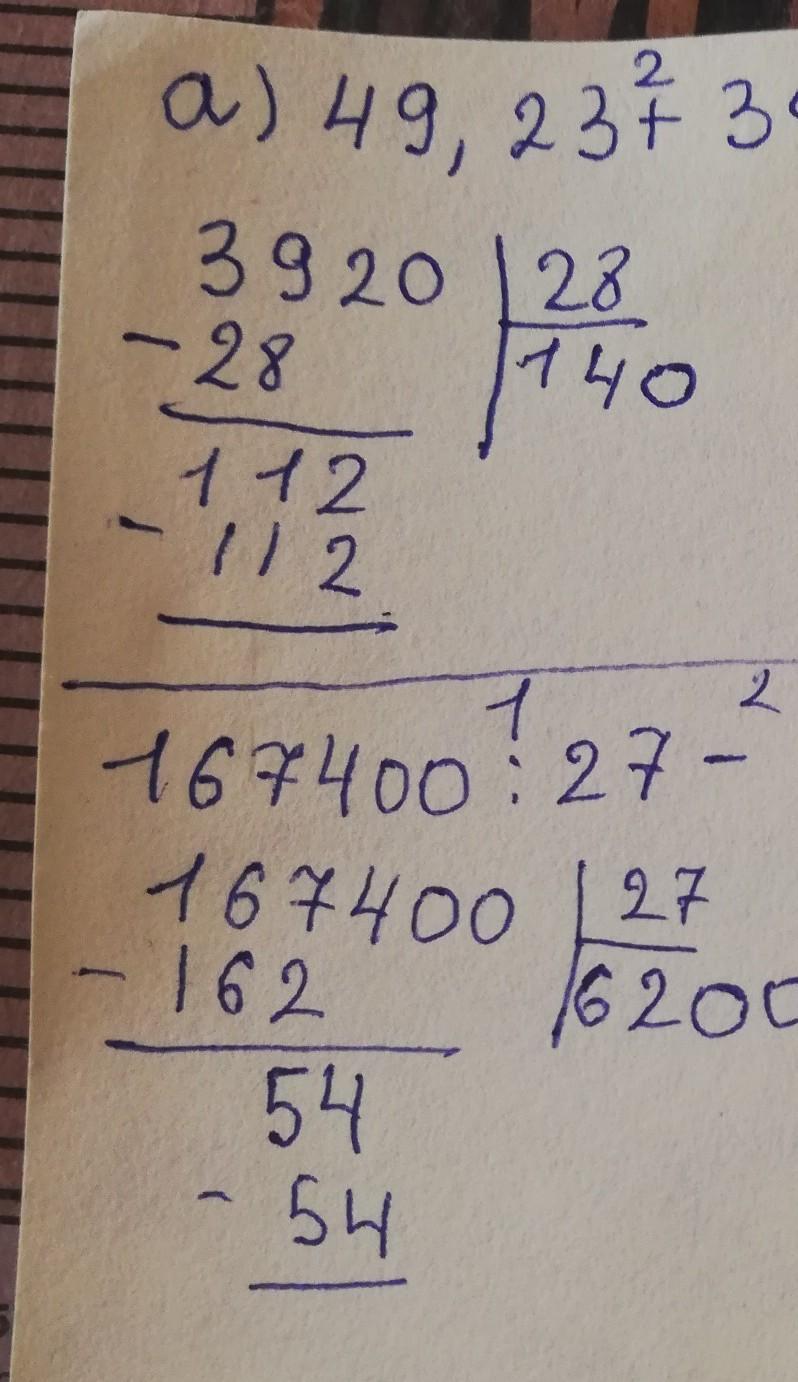 а) 49,23 +² 3
3920 | 28
- 28 | 140
112
- 112
167400 :¹ 27 -²
167400 | 27
- 162 | 6200
54
- 54